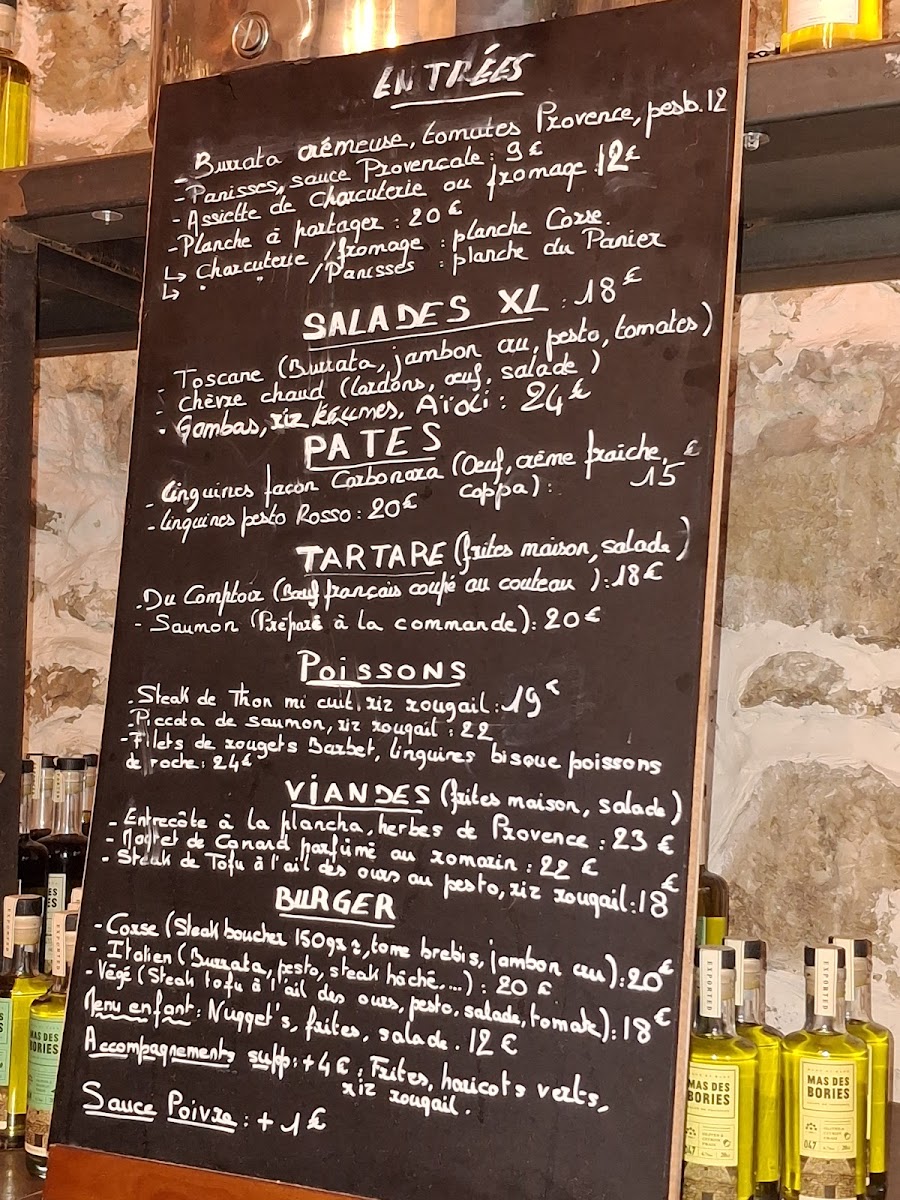 ENTRÉES
- Burrata crémeuse, tomates Provence, pesto. 12
- Panisses, sauce Provençale : 9€
- Assiette de Charcuterie ou fromage 12€
- Planche à partager : 20€
↳ Charcuterie / fromage : planche Corse.
↳ " " / Panisses : planche du Panier
SALADES XL : 18€
- Toscane (Burrata, jambon cru, pesto, tomates)
- Chèvre chaud (lardons, œuf, salade)
- Gambas, riz légumes, Aïoli : 24€
PATES
- Linguines façon Carbonara (Oeuf, crème fraiche, coppa) : 15€
- linguines pesto Rosso : 20€
TARTARE (frites maison, salade)
- Du Comptoir (Bœuf français coupé au couteau) : 18€
- Saumon (Préparé à la commande) : 20€
POISSONS
- Steak de Thon mi cuit, riz rougail : 19€
- Piccata de saumon, riz rougail : 22
- Filets de rougets Barbet, linguines bisque poissons
de roche : 24€
VIANDES (frites maison, salade)
- Entrecôte à la plancha, herbes de Provence : 23€
- Magret de Canard parfumé au romarin : 22€
- Steak de Tofu à l'ail des ours au pesto, riz rougail : 18€
BURGER
- Corse (Steak boucher 150grs, tome brebis, jambon cru) : 20€
- Italien (Burrata, pesto, steak hâché,...) : 20€
- Végé (Steak tofu à l'ail des ours, pesto, salade, tomate) : 18€
Menu enfant : Nugget's, frites, salade. 12€
Accompagnements supp : +4€ : Frites, haricots verts,
riz rougail.
Sauce Poivre : +1€
EXPORTED
MAS DES
BORIES
047
EXPORTED
MAS DES
BORIES
047
EXPORTED
MAS DES
BORIES